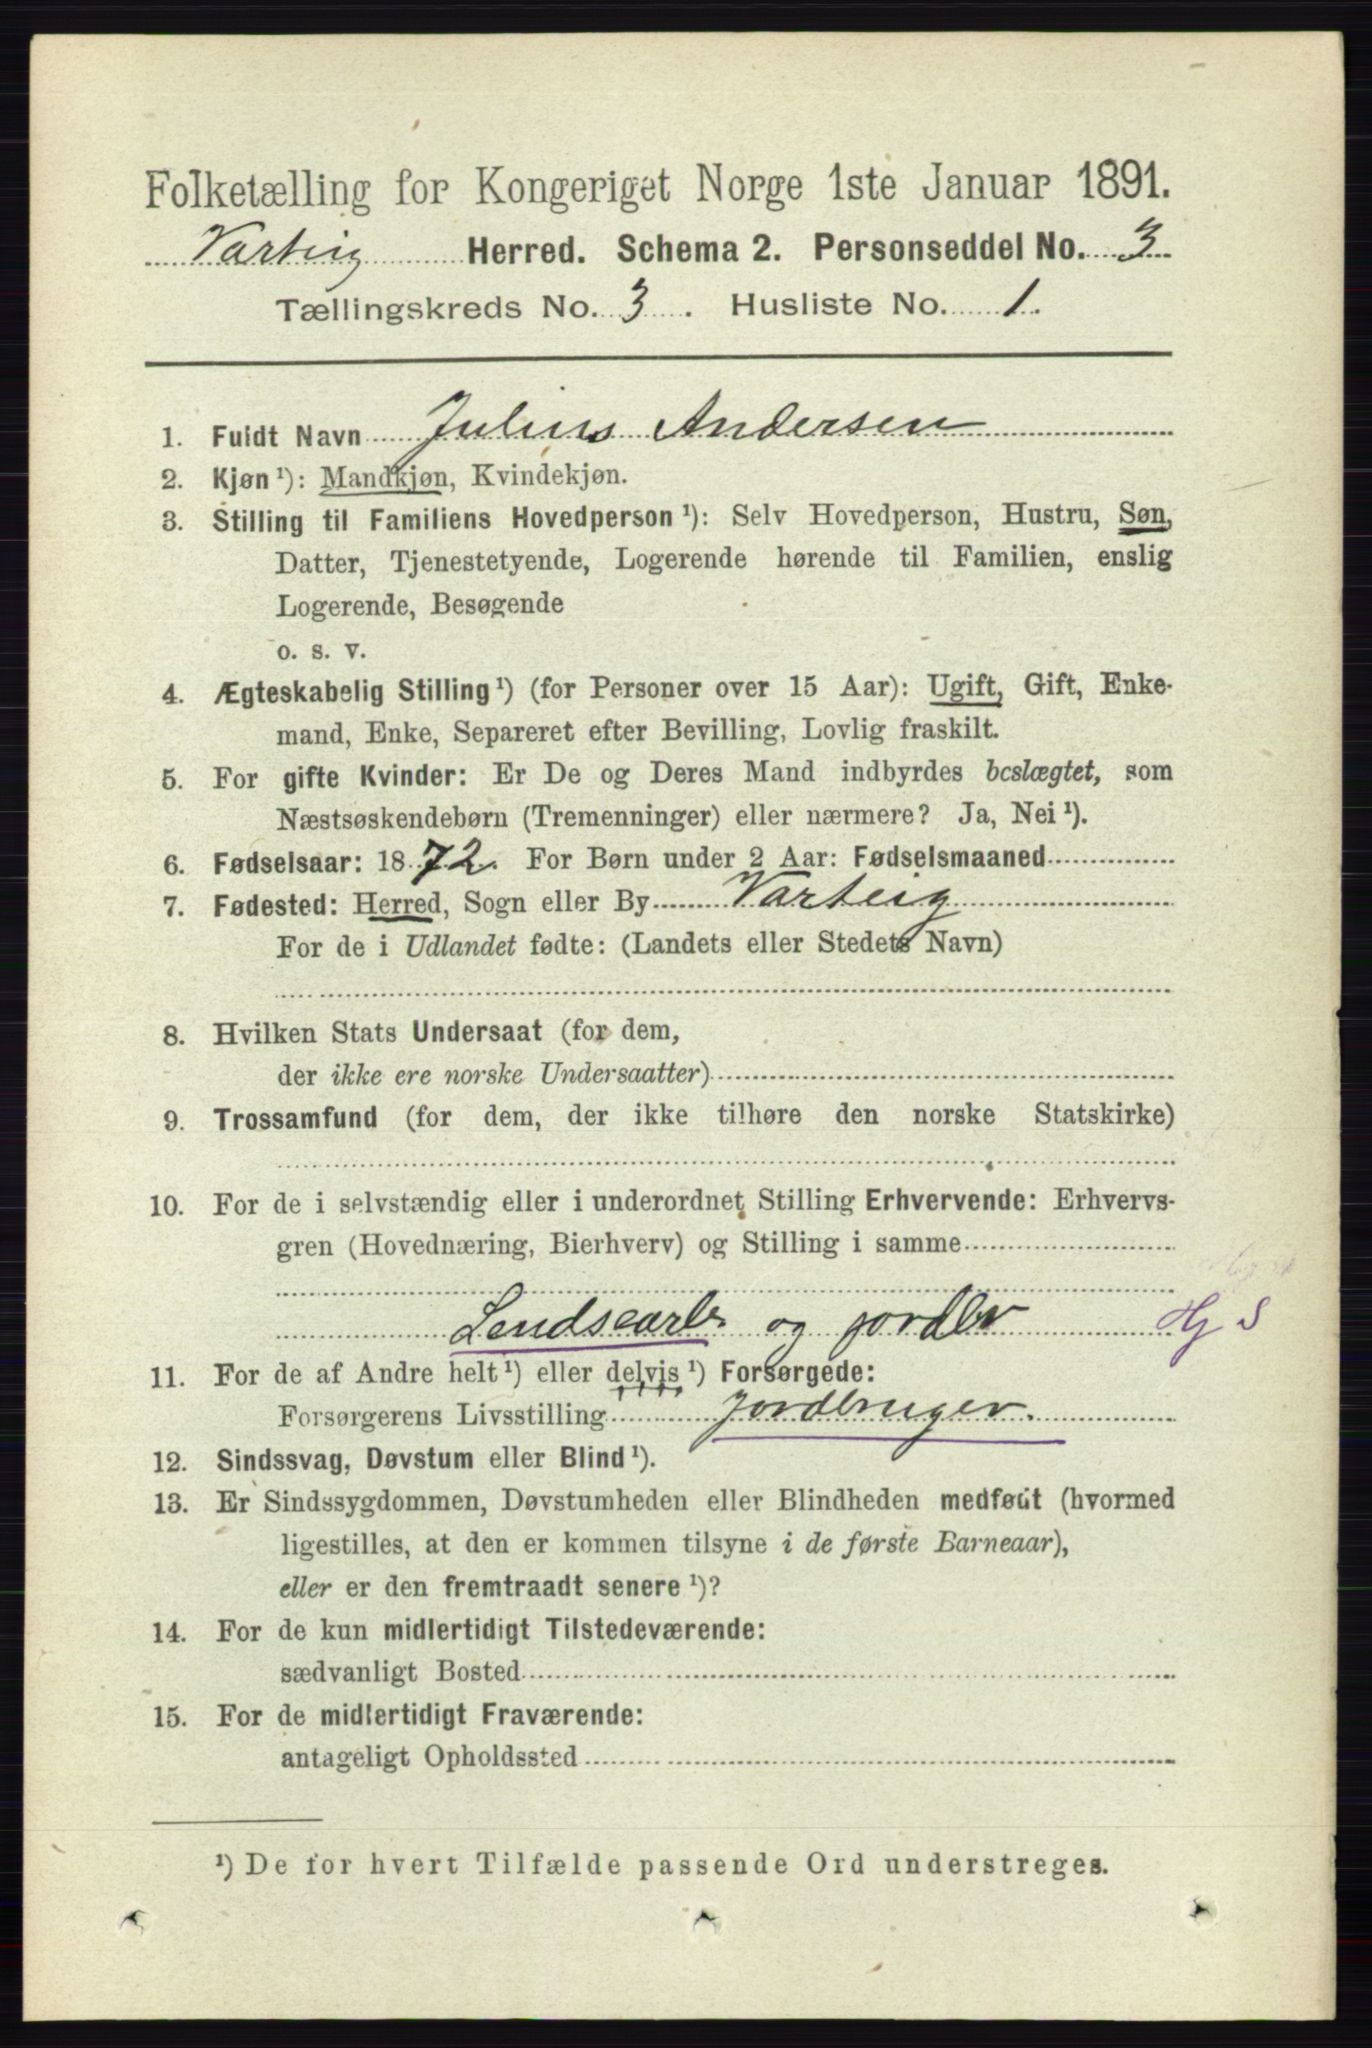 Folketælling for Kongeriget Norge 1ste Januar 1891.
Varteig Herred. Schema 2. Personseddel No. 3
Tællingskreds No. 3. Husliste No. 1.
1. Fuldt Navn Julius Andersen
2. Kjøn ¹): Mandkjøn, Kvindekjøn.
3. Stilling til Familiens Hovedperson ¹): Selv Hovedperson, Hustru, Søn,
Datter, Tjenestetyende, Logerende hørende til Familien, enslig
Logerende, Besøgende
o. s. v.
4. Ægteskabelig Stilling ¹) (for Personer over 15 Aar): Ugift, Gift, Enke-
mand, Enke, Separeret efter Bevilling, Lovlig fraskilt.
5. For gifte Kvinder: Er De og Deres Mand indbyrdes beslægtet, som
Næstsøskendebørn (Tremenninger) eller nærmere? Ja, Nei ¹).
6. Fødselsaar: 1872. For Børn under 2 Aar: Fødselsmaaned
7. Fødested: Herred, Sogn eller By Varteig
For de i Udlandet fødte: (Landets eller Stedets Navn)
8. Hvilken Stats Undersaat (for dem,
der ikke ere norske Undersaatter)
9. Trossamfund (for dem, der ikke tilhøre den norske Statskirke)
10. For de i selvstændig eller i underordnet Stilling Erhvervende: Erhvervs-
gren (Hovednæring, Bierhverv) og Stilling i samme
og Hj S
11. For de af Andre helt ¹) eller delvis ¹) Forsørgede:
Forsørgerens Livsstilling Jordbruger.
12. Sindssvag, Døvstum eller Blind ¹).
13. Er Sindssygdommen, Døvstumheden eller Blindheden medfødt (hvormed
ligestilles, at den er kommen tilsyne i de første Barneaar),
eller er den fremtraadt senere ¹)?
14. For de kun midlertidigt Tilstedeværende:
sædvanligt Bosted
15. For de midlertidigt Fraværende:
antageligt Opholdssted
¹) De for hvert Tilfælde passende Ord understreges.